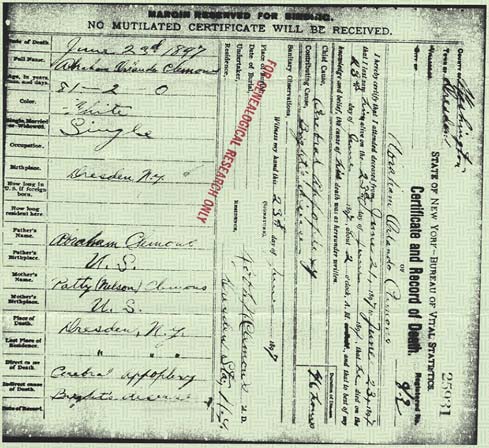 MARGIN RESERVED FOR BINDING.
NO MUTILATED CERTIFICATE WILL BE RECEIVED.
Date of Death. June 23d 1897
Full Name. Abraham Orlando Clemons
Age, in years, mos. and days. 81 - 2 0
Color. White
Single, Married or Widowed. Single
Occupation.
Birthplace. Dresden N.Y.
How long in U.S. if foreign born.
How long resident here.
Father's Name. Abraham Clemons
Father's Birthplace. U.S.
Mother's Name. Patty (Nelson) Clemons
Mother's Birthplace. U.S.
Place of Death. Dresden, N.Y.
Last Place of Residence. " "
Direct cause of Death. Cerebral appoplexy
Indirect cause of Death. Bright's disease
Date of Record.
25931
STATE OF NEW YORK - BUREAU OF VITAL STATISTICS.
Certificate and Record of Death
Registered No. 92
OF
Abraham Orlando Clemons
County of Washington
Town of Dresden
City or
I hereby certify that I attended deceased from June 21, 1897 to June 23, 1897
that I last saw him alive on the 23d day of June 1897, that he died on the
23d day of June 1897, about 2 o'clock, A.M. and that to the best of my
knowledge and belief, the cause of his death was as hereunder written:
Duration of Disease.
Chief Cause, Cerebral Appoplexy
Contributing Cause, Bright's Disease
Sanitary Observations,
Witness my hand this 23d day of June 1897
(SIGNATURE)
M.D.
Place of Burial,
Date of Burial,
Undertaker,
Residence,
RESIDENCE,
FOR GENEALOGICAL RESEARCH ONLY